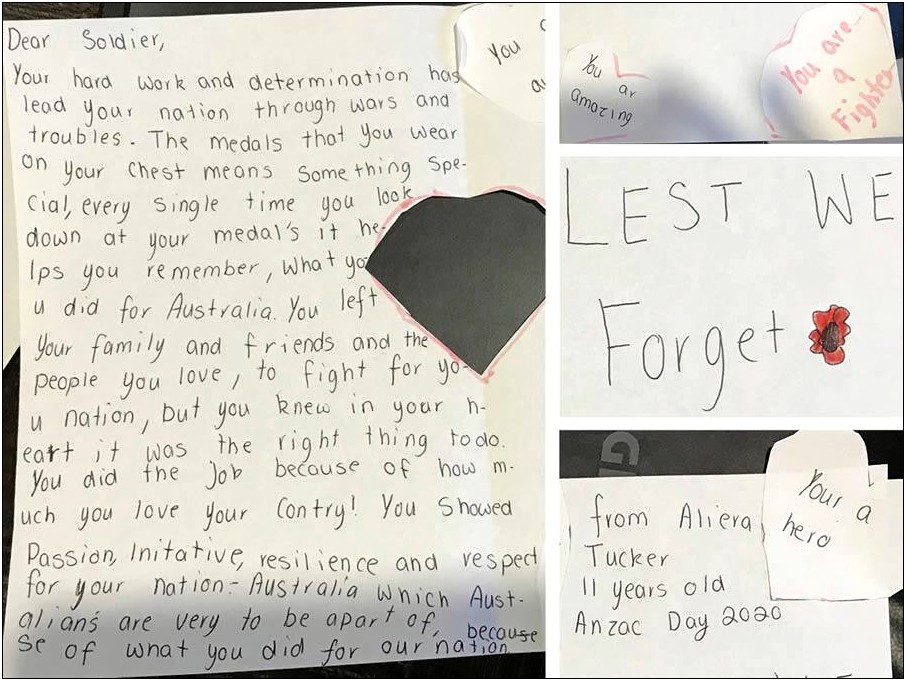 Dear Soldier,
Your hard work and determination has
lead your nation through wars and
troubles. The medals that you wear
on your chest means something spe-
cial, every single time you look
down at your medal's it he-
lps you remember, what yo-
u did for Australia. You left
your family and friends and the
people you love, to fight for yo-
u nation, but you knew in your h-
eart it was the right thing to do.
You did the job because of how m-
uch you love your Contry! You showed
Passion, Initative, resilience and respect
for your nation - Australia which Aust-
alians are very to be apart of, because
se of what you did for our nation
You
You
ar
amazing
You are
a
Fighter
LEST WE
Forget
Your a
hero
from Aliera
Tucker
11 years old
Anzac Day 2020